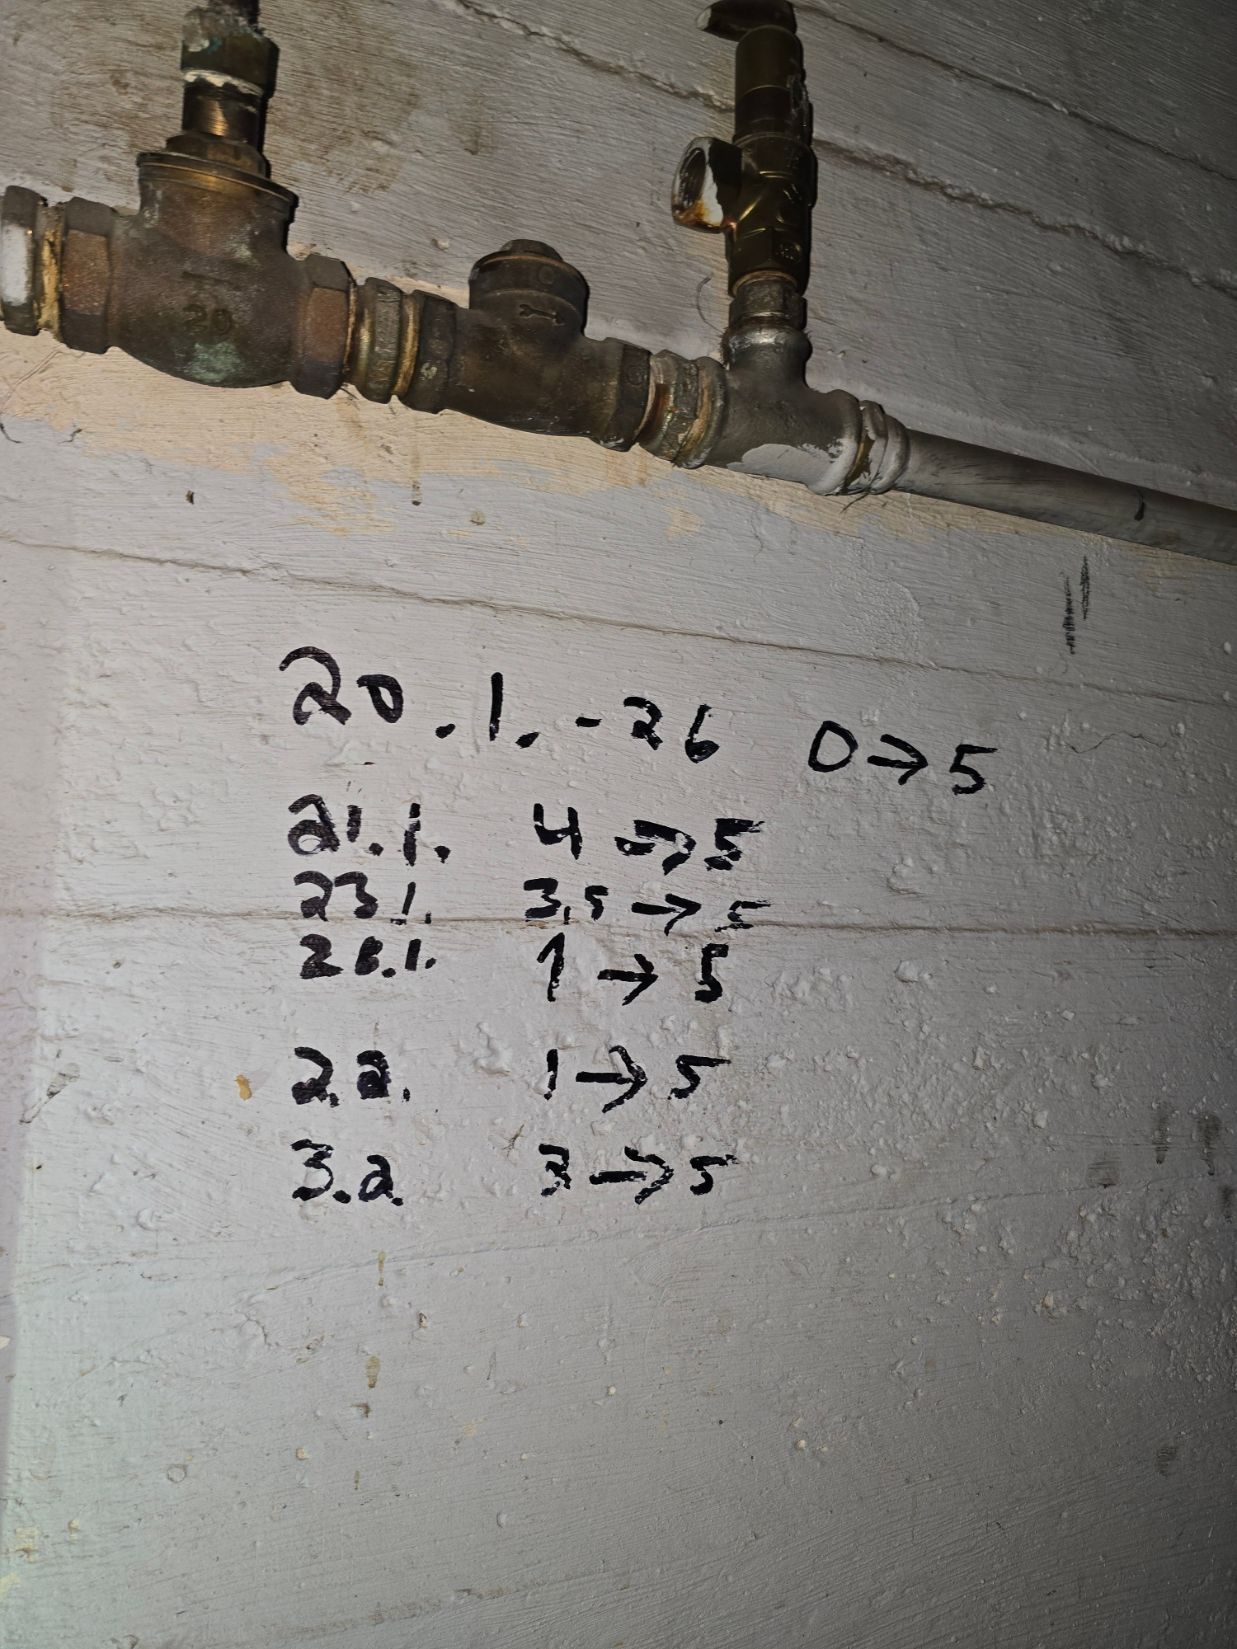 20
20.1.-26 0→5
21.1. 4→5
23.1. 3,5→5
26.1. 1→5
2.2. 1→5
3.2. 3→5